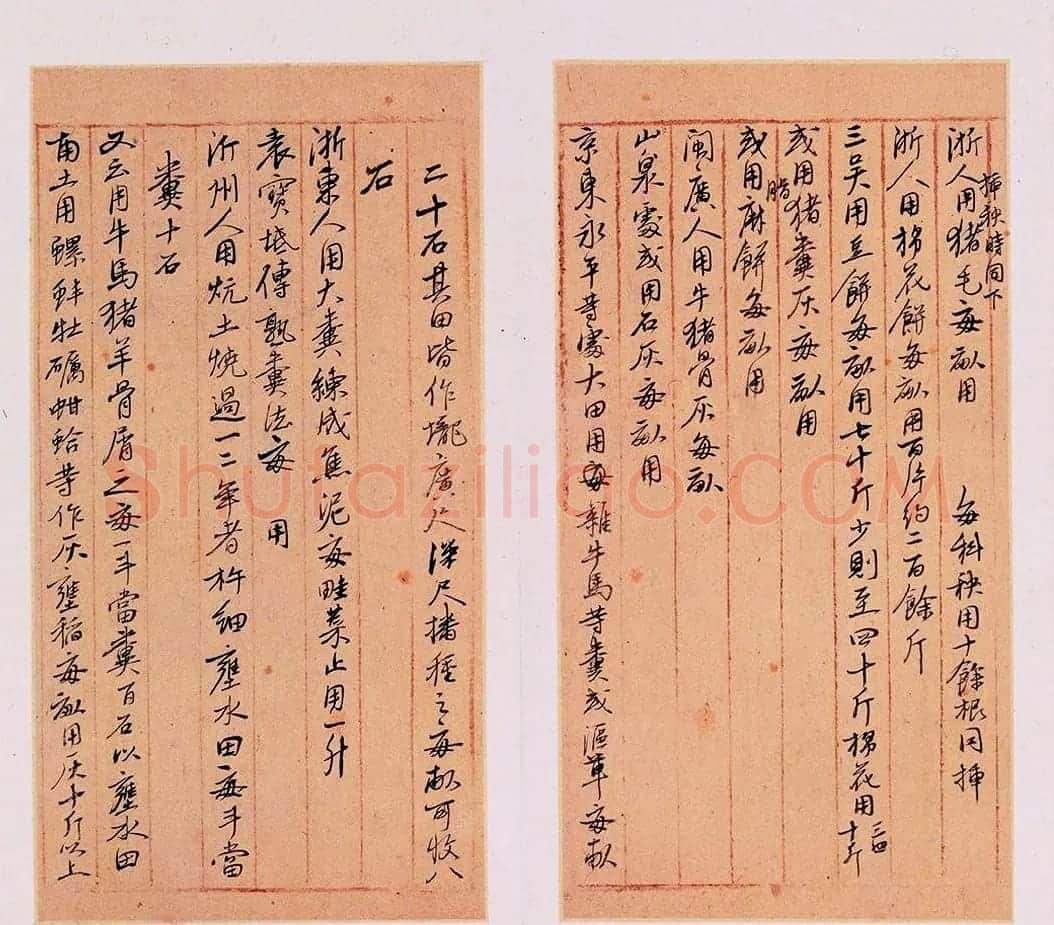 浙人用猪毛每畝用 每科秧用十餘根同挿
挿秧時同下
浙人用棉花餅每畝用百片約二百餘斤
三吴用豆餅每畝用七十斤少則至四十斤棉花用三四十斤
或用猪糞灰每畝用
或用脂麻餅每畝用
閩廣人用牛猪骨灰每畝
山泉處或用石灰每畝用
京東永平等處大田用每雜牛馬等糞或漚草每畝
二十石其田皆作壠廣尺深尺播種之每畝可收八
石
浙東人用大糞練成焦泥每畦菜止用一升
袁寶坻傳熟糞法每 用
沂州人用炕土燒過一二年者杵細壅水田每斗當
糞十石
又云用牛馬猪羊骨屑之每一斗當糞百石以壅水田
南土用螺蚌牡礪蚶蛤等作灰壅稻每畝用灰十斤以上
Shufaziliao.COM